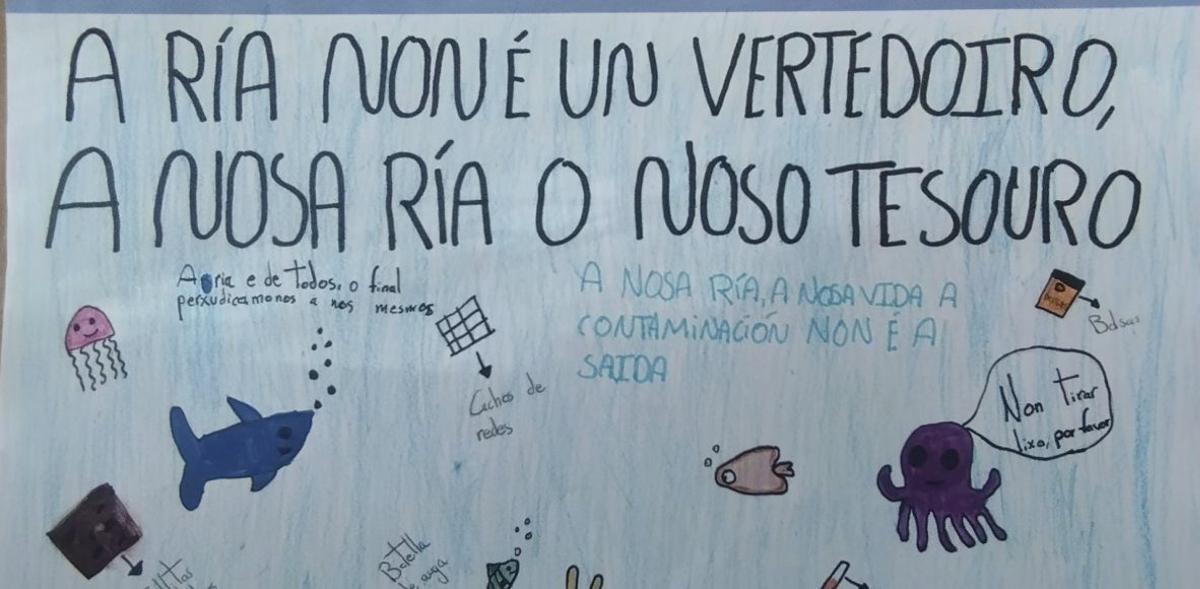 A RÍA NON É UN VERTEDOIRO,
A NOSA RÍA O NOSO TESOURO
A ria e de todos, o final
perxudicamonos a nos mesmos
A NOSA RÍA, A NOSA VIDA A
CONTAMINACIÓN NON É A
SAIDA
Bolsas
Cachos de
redes
Non tirar
lixo, por favor
Botella
de auga